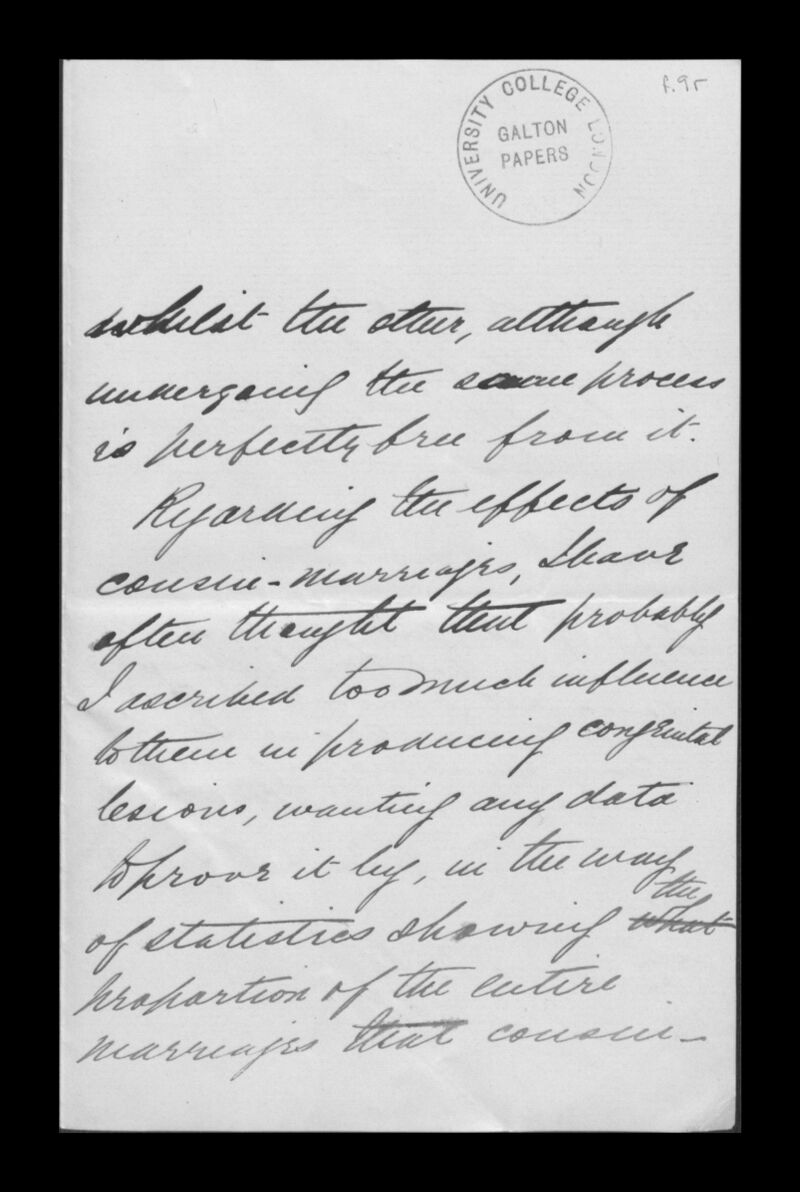 UNIVERSITY COLLEGE LONDON
GALTON
PAPERS
f.95
whilst the other, although
undergoing the same process
is perfectly free from it.
Regarding the effects of
cousin-marriages, I have
often thought that probably
I ascribed too much influence
to them in producing congenital
lesions, wanting any data
to prove it by, in the way
the
of statistics showing what
proportion of the entire
marriages that cousin-